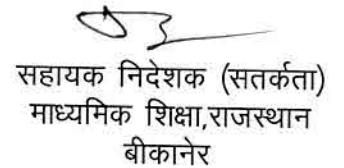 सहायक निदेशक (सतर्कता)
माध्यमिक शिक्षा,राजस्थान
बीकानेर